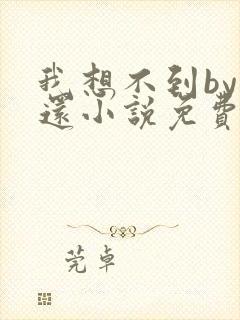 我想不到by
還小說免費
莞卓